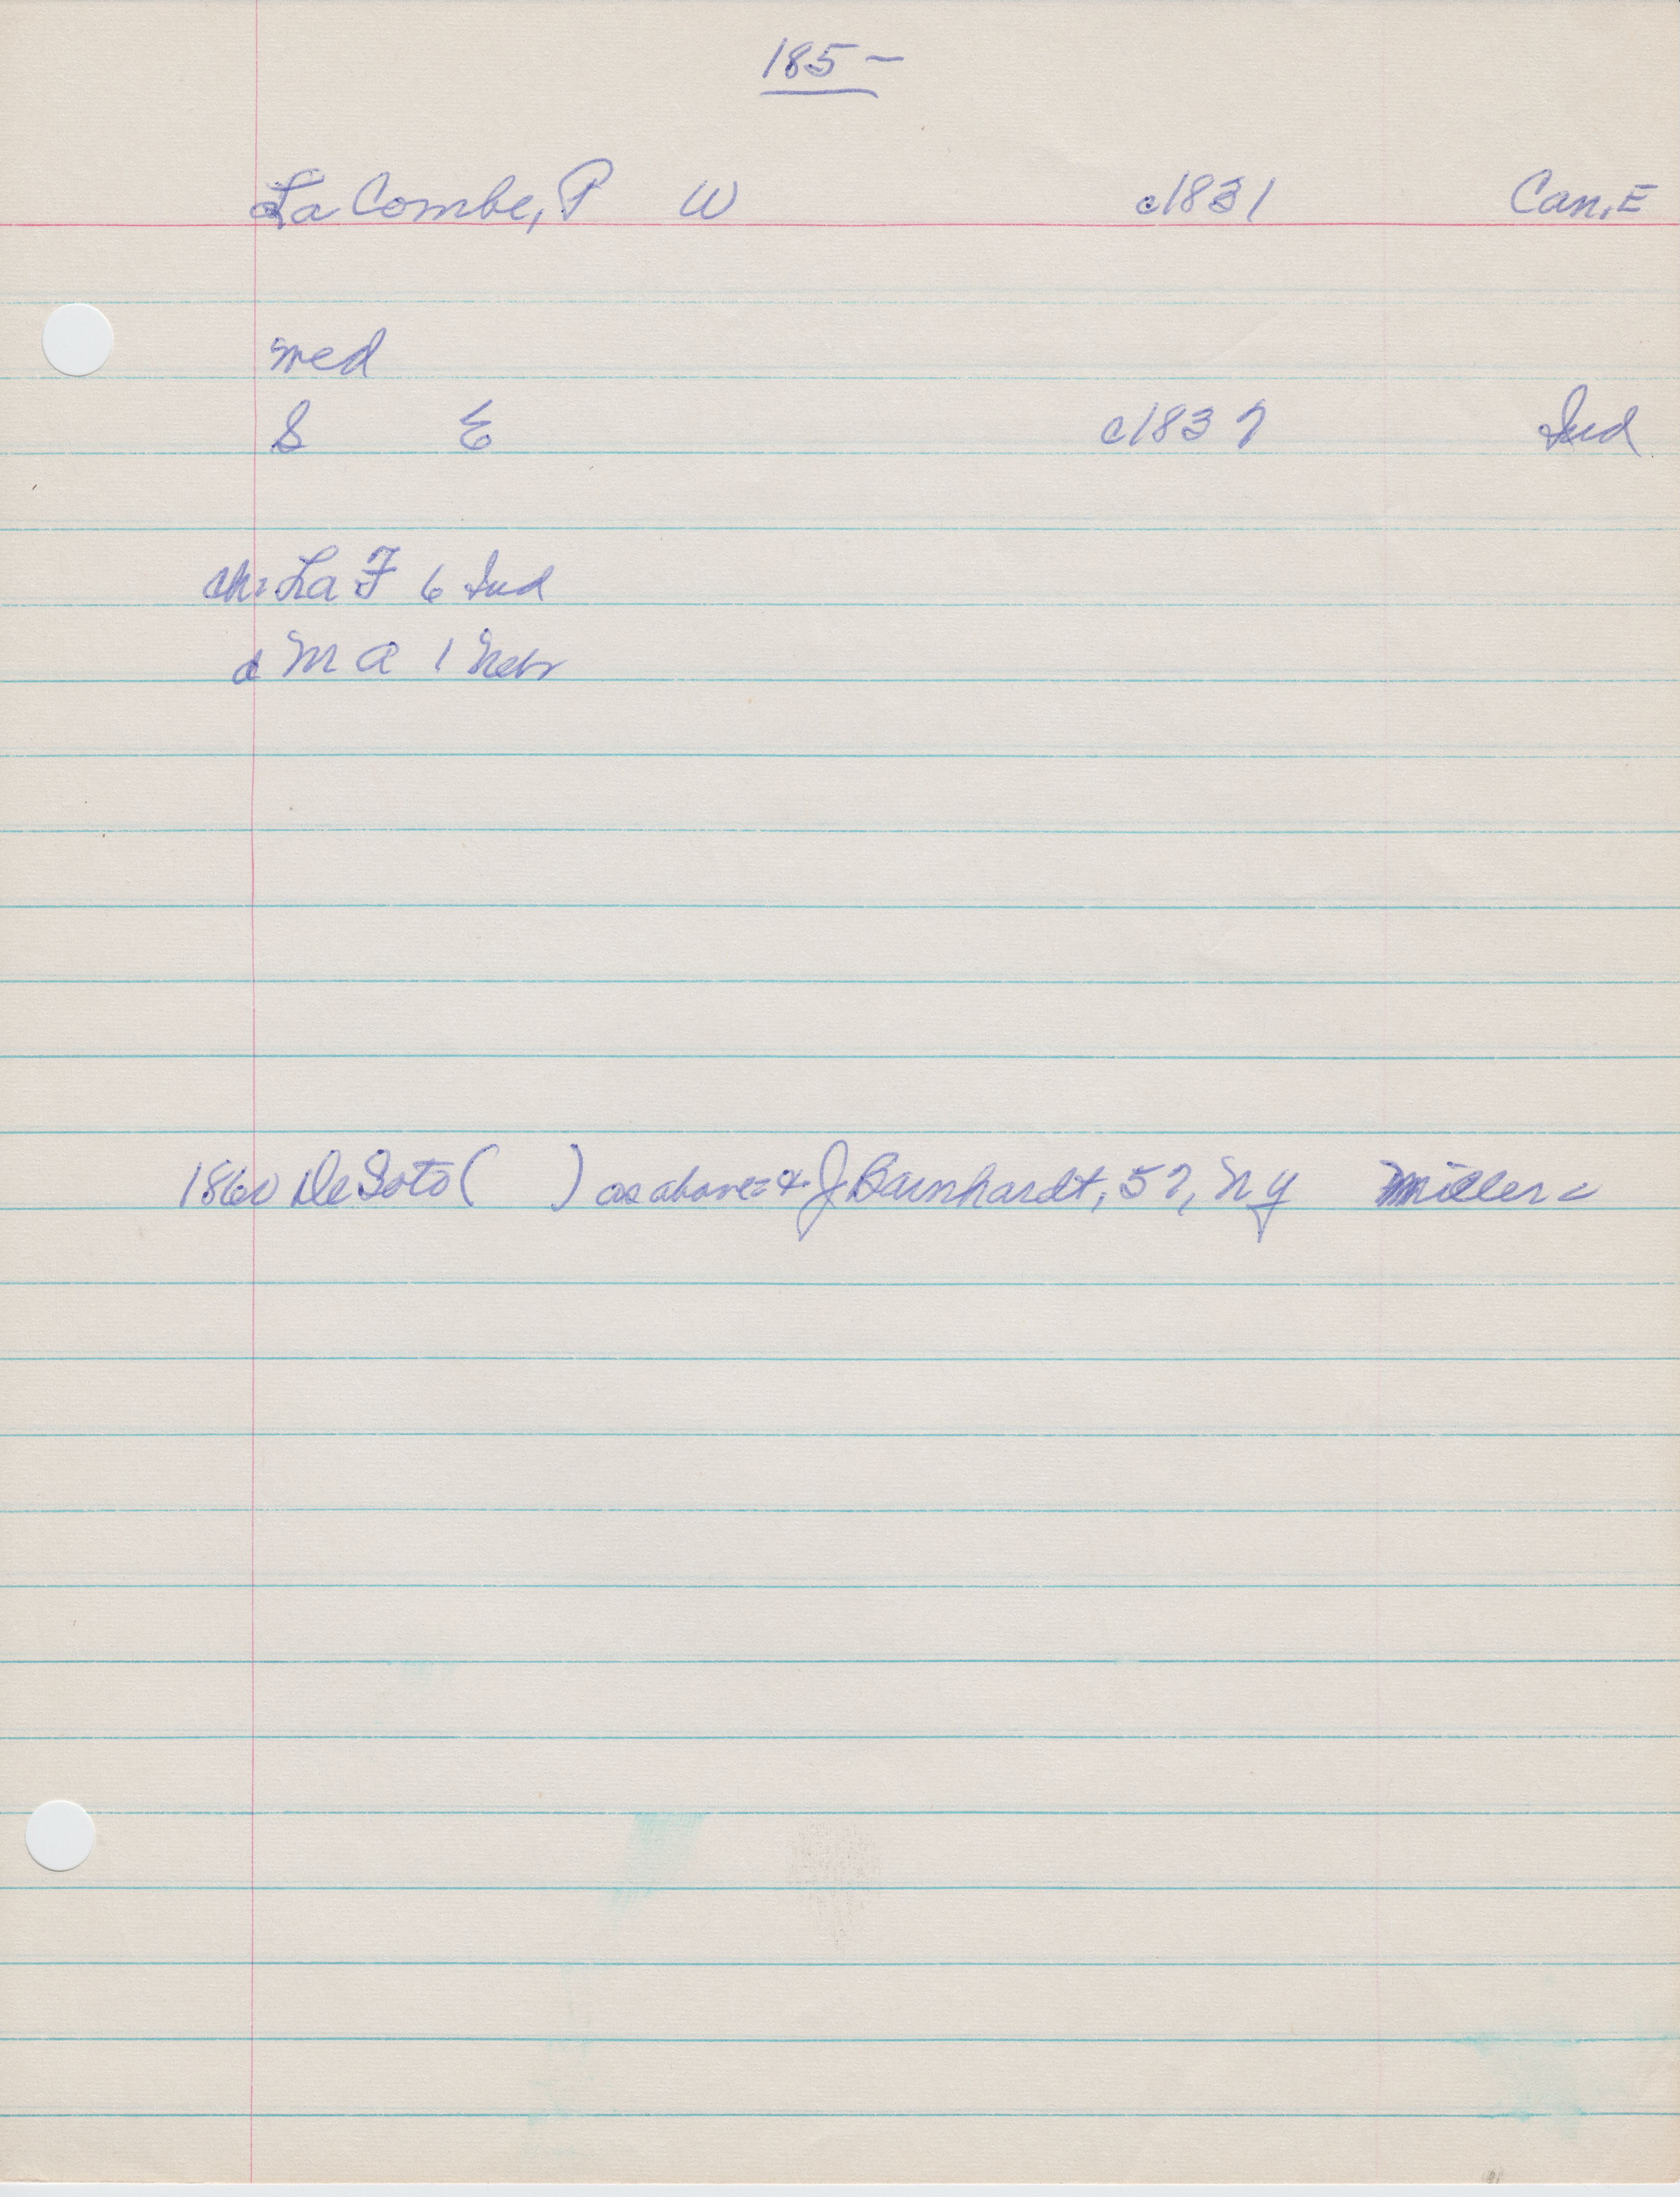 185-
La Combe, P W c1831 Can. E
med
S E c1837 Ind
ch: La F 6 Ind
d M A 1 Nebr
1860 De Soto ( ) as above: & J Barnhardt, 57, N Y Miller